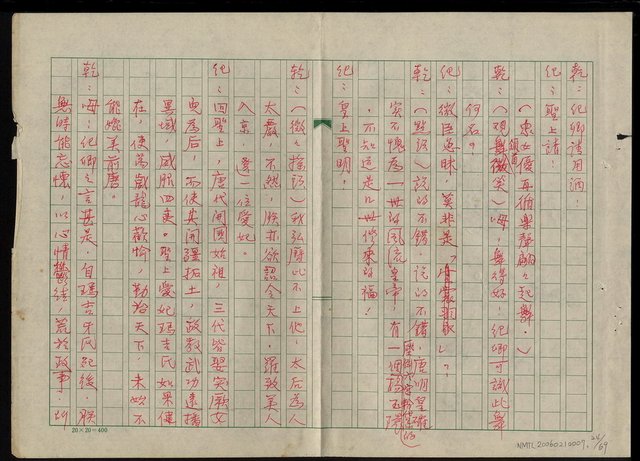 乾：紀卿請用酒！
紀：聖上請！
（眾女優再俯樂聲翩々起舞。）
乾：（觀舞頷首微笑）唔，舞得好！紀卿可識此舞
何名？
紀：微臣愚昧，莫非是「霓裳羽衣」？
乾：（點頭）說的不錯，說的不錯，唐明皇確
實不愧為一世的風流皇帝，有一個
楊玉環
，不知這是幾世修來的福！
紀：皇上聖明！
乾：（微々搖頭）我弘曆比不上他，太后為人
太嚴，不然，朕亦欲詔令天下，羅致美人
入京，選一位愛妃。
紀：回聖上，唐代開國始祖，三代皆娶突厥女
曳為后，而使其開疆拓土，敬教武功遠播
異域，威服四夷。聖上愛妃瑪吉氏如果健
在，使萬歲龍心歡愉，勤治天下，未必不
能媲美前唐。
乾：唔！紀卿之言甚是，自瑪吉牙氏死後，朕
無時能忘懷，以心情鬱結，荒於政事，所
20×20=400
NMTL20060210009
24/69